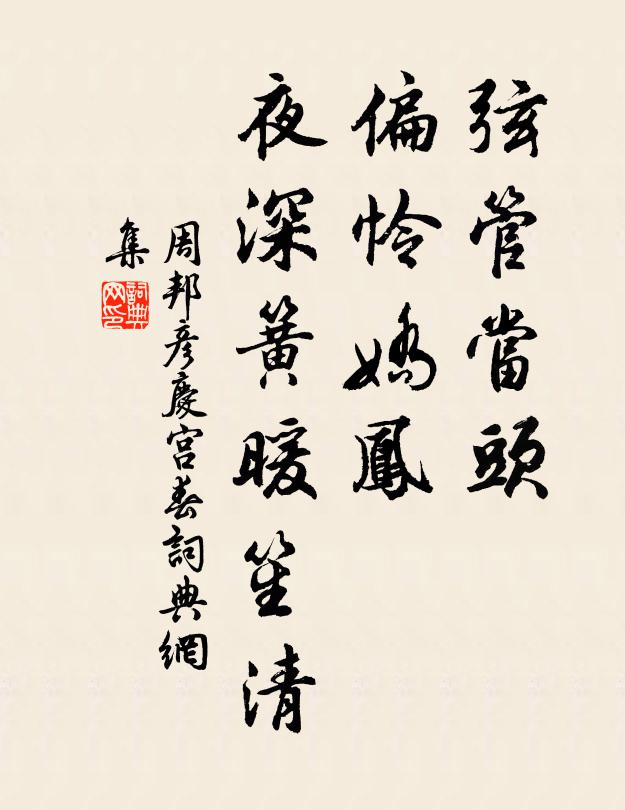 弦管當頭
偏怜嬌鳳
夜深簧暖笙清
周邦彥慶宮春詞典網
集
詞典
网印